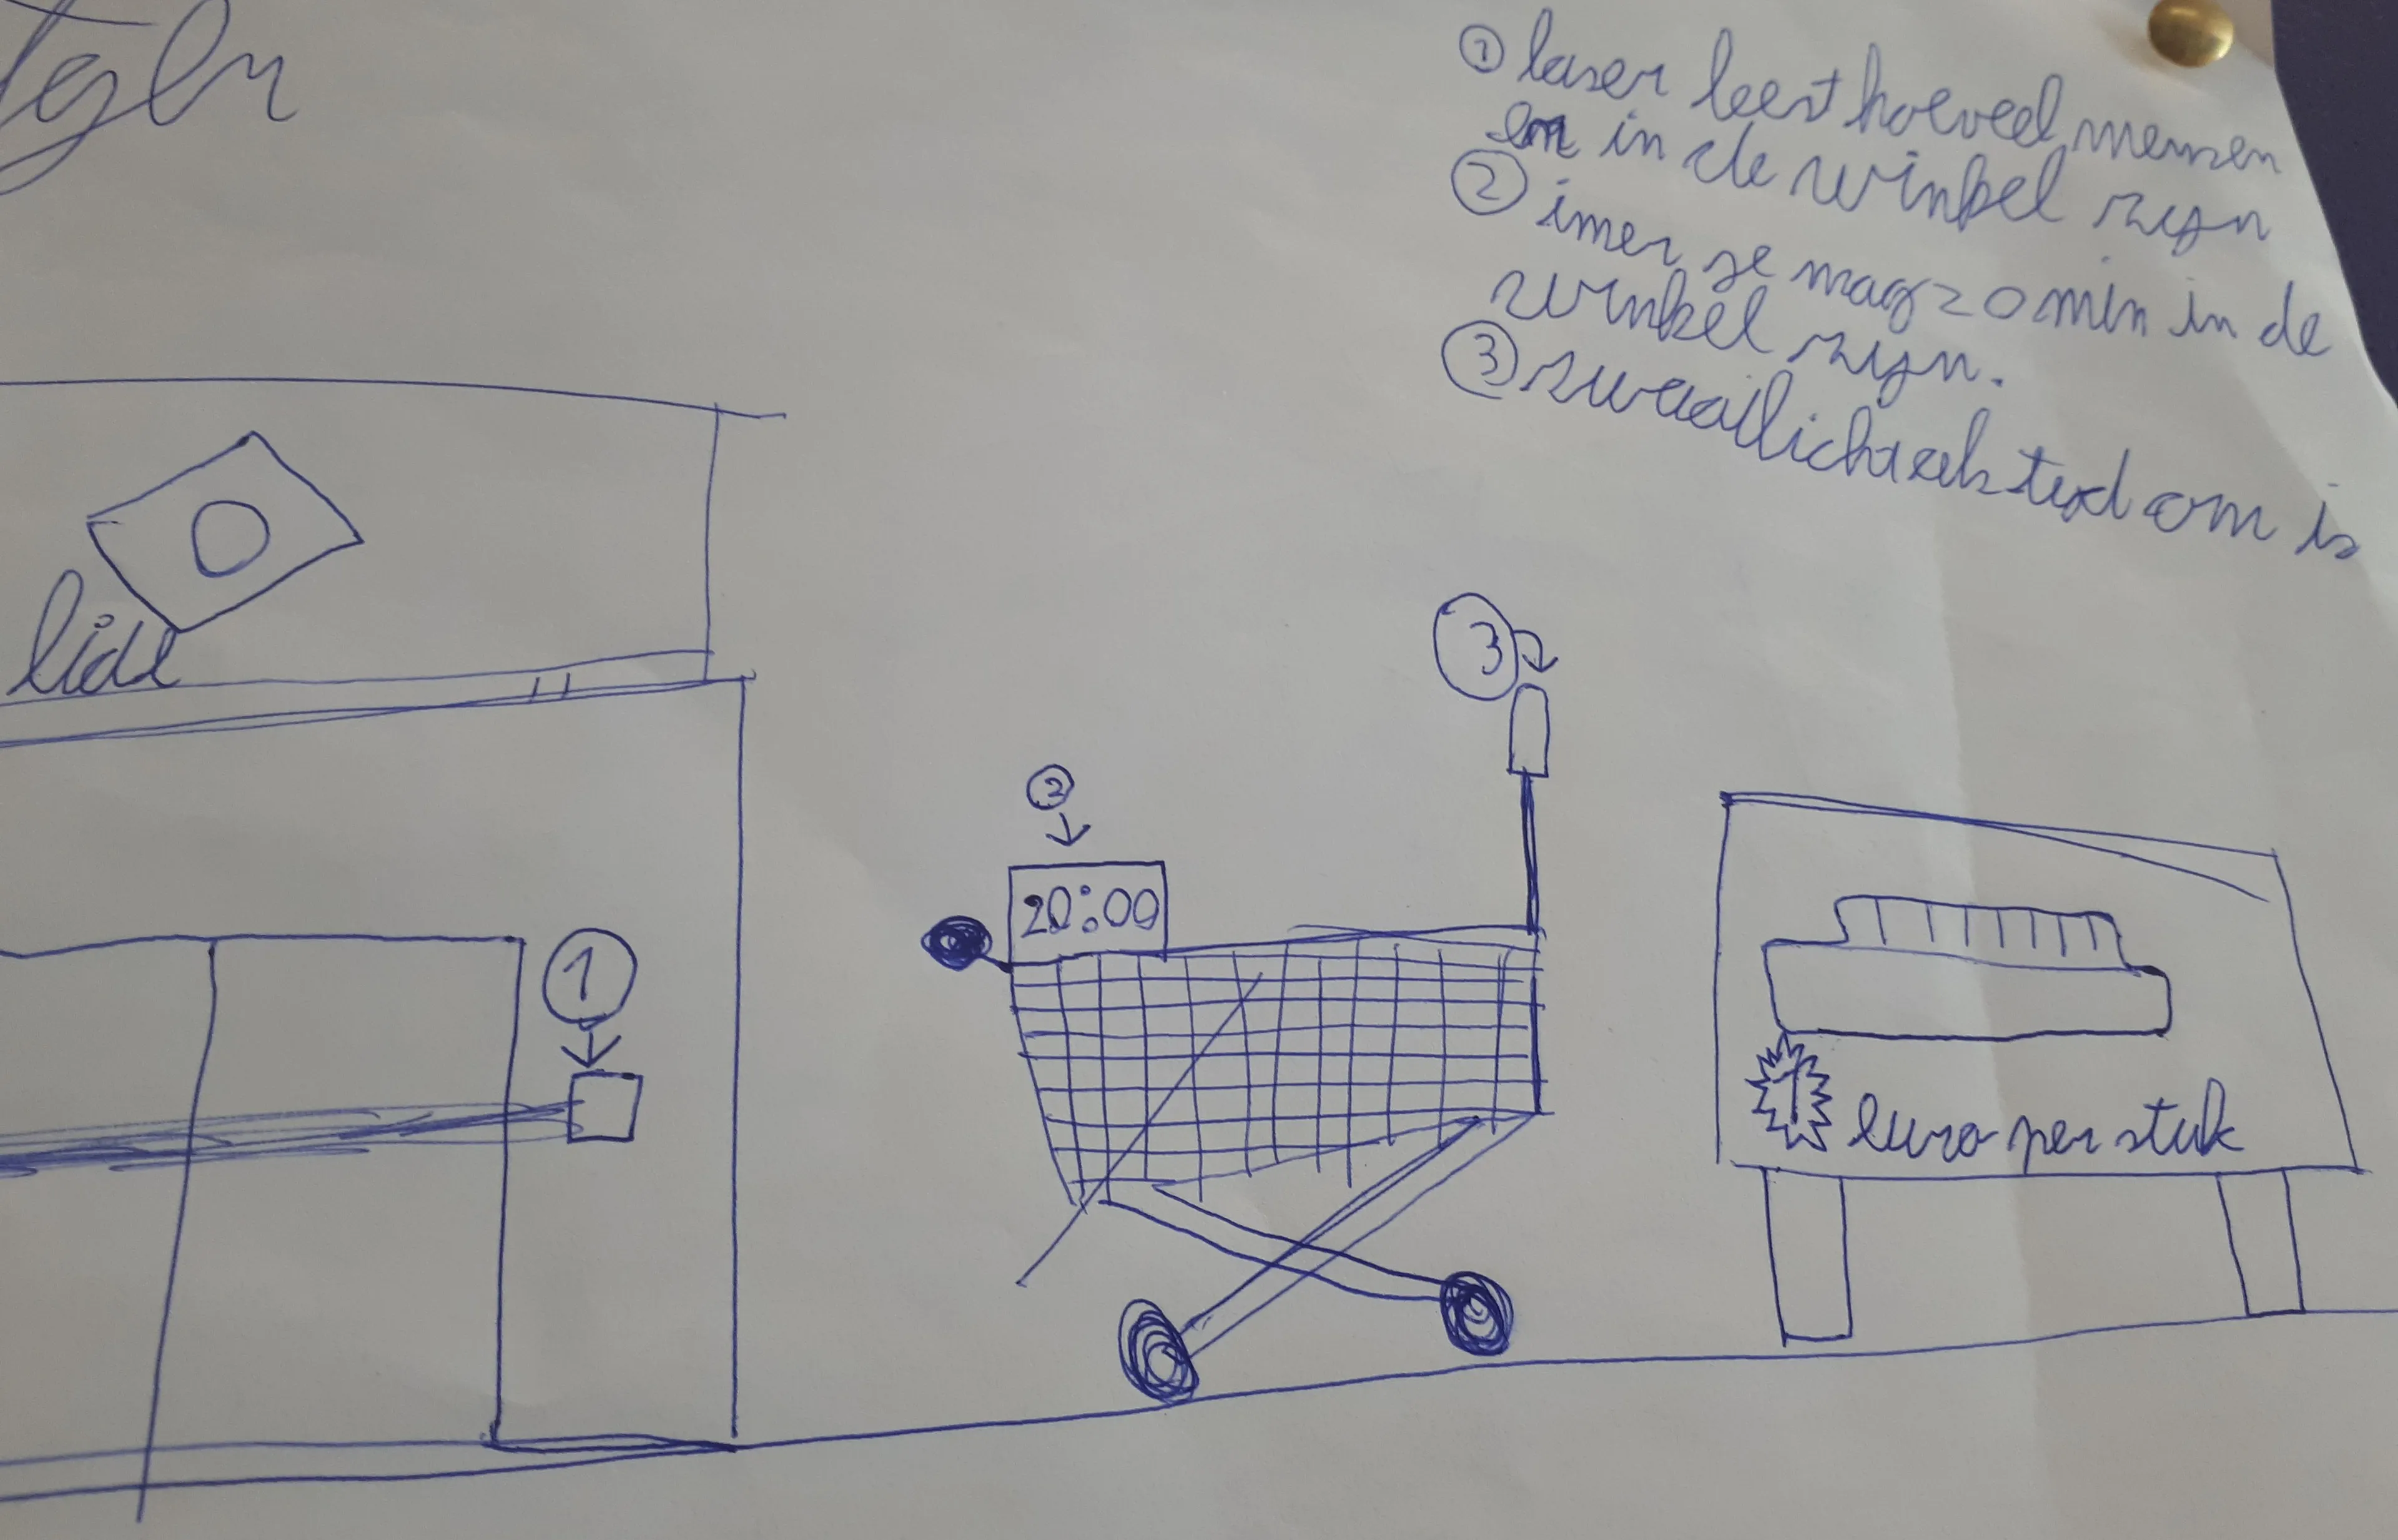 ① laser leest hoeveel mensen
en in de winkel zijn
② imer je mag 20 min in de
winkel zijn.
③ zwaailicht als tijd om is
lidl
3
2
20:00
1
1 euro per stuk